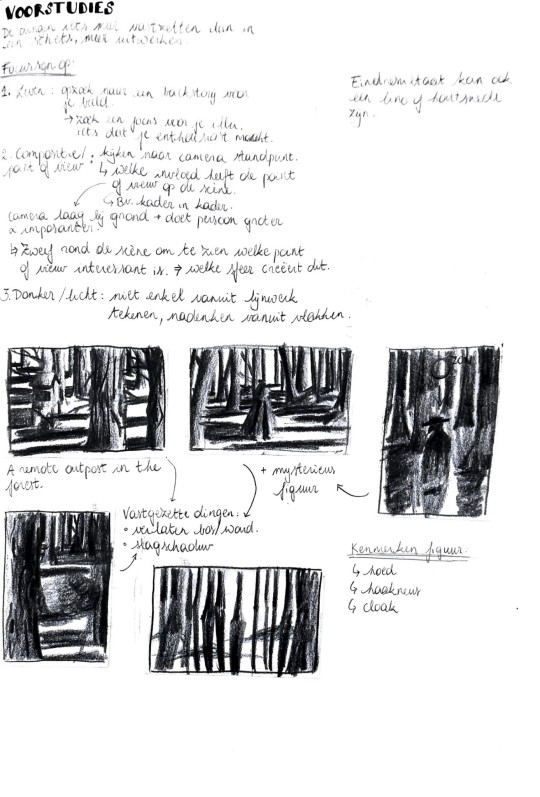 VOORSTUDIES
De dingen iets meer vastzetten dan in
een schets, meer uitwerken.
Focussen op:
1. Leven: opzoek naar een backstory voor
je beeld.
→ zoek een focus voor je illu.
iets dat je enthousiast maakt.
2. Compositie/point of view: kijken naar camera standpunt.
↳ welke invloed heeft de point
of view op de scène.
↳ Bv. kader in kader.
camera laag bij grond → doet persoon groter
& imposanter.
↳ Zweef rond de scène om te zien welke point
of view interessant is. → welke sfeer creëert dit.
3. Donker/licht: niet enkel vanuit lijnwerk
tekenen, nadenken vanuit vlakken.
Eindresultaat kan ook
een lino of houtsnede
zijn.
zon
A remote outpost in the
forest.
+ mysterieus
figuur
Vastgezette dingen:
• verlaten bos/woud.
• slagschaduw
Kenmerken figuur:
↳ hoed
↳ haakneus
↳ cloak